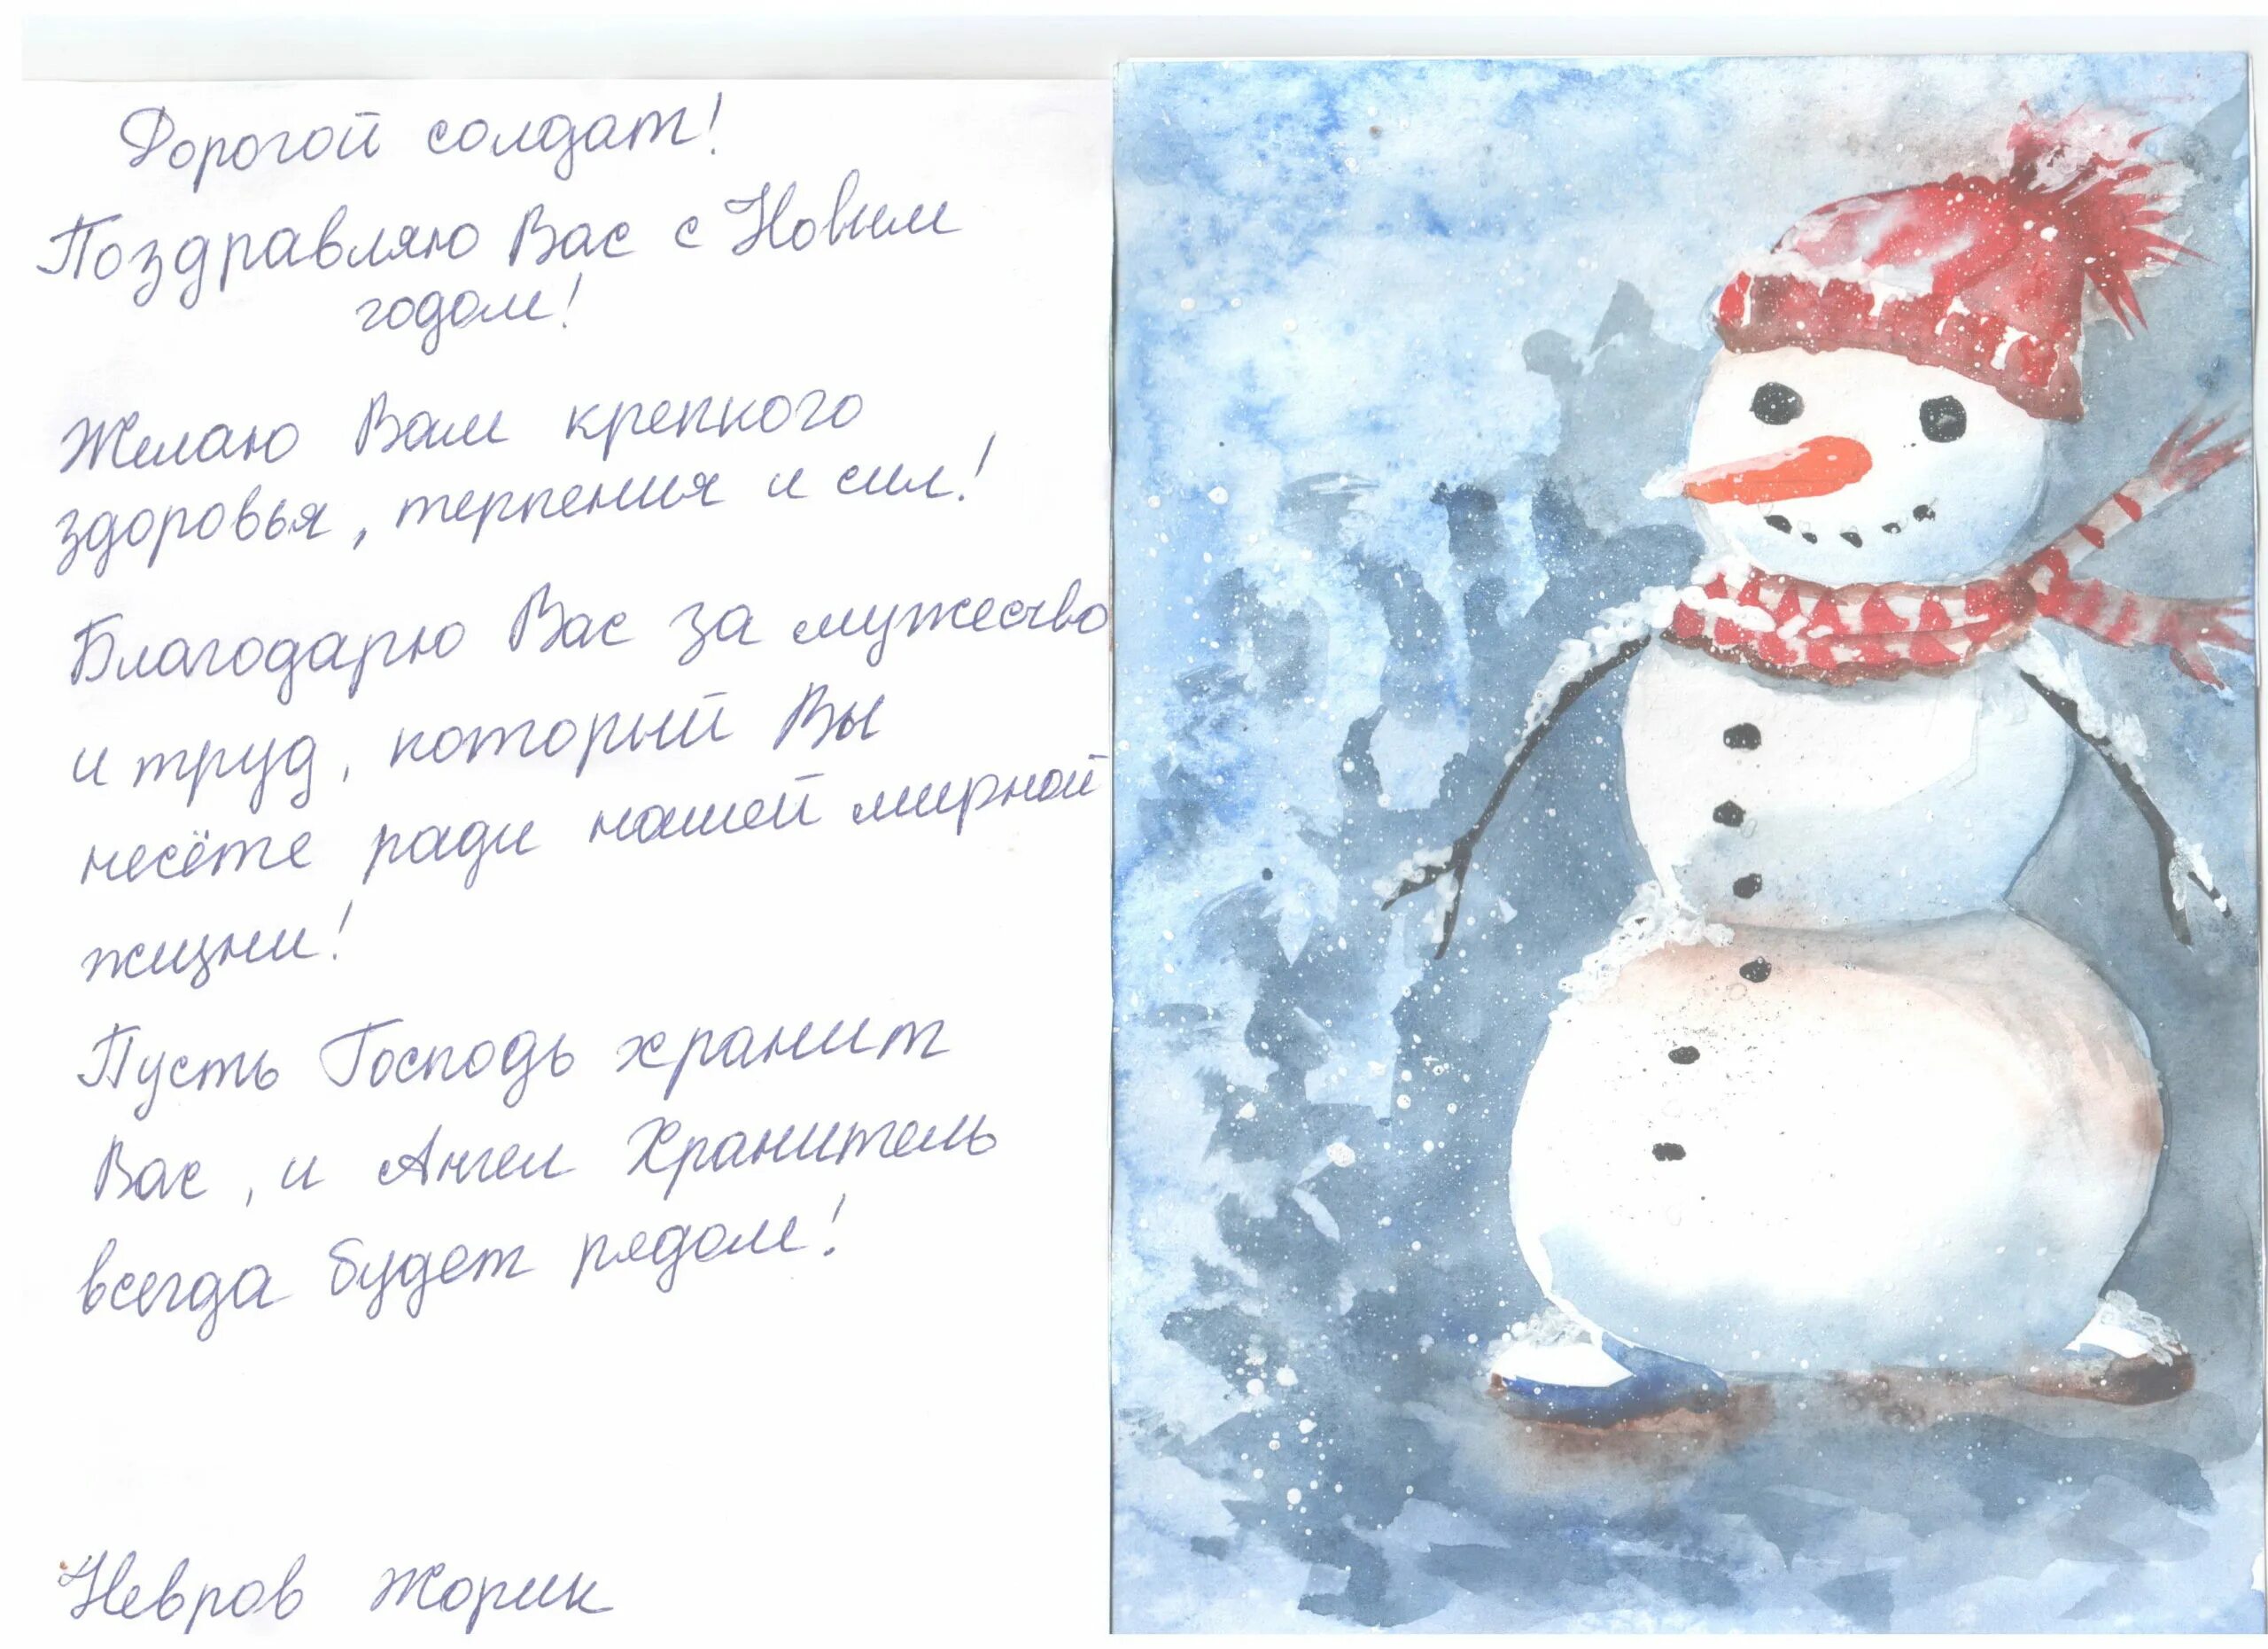 Дорогой солдат!
Поздравляю Вас с Новым
годом!
Желаю Вам крепкого
здоровья, терпения и сил!
Благодарю Вас за мужество
и труд, который Вы
несёте ради нашей мирной
жизни!
Пусть Господь хранит
Вас, и Ангел Хранитель
всегда будет рядом!
Невров Жорик